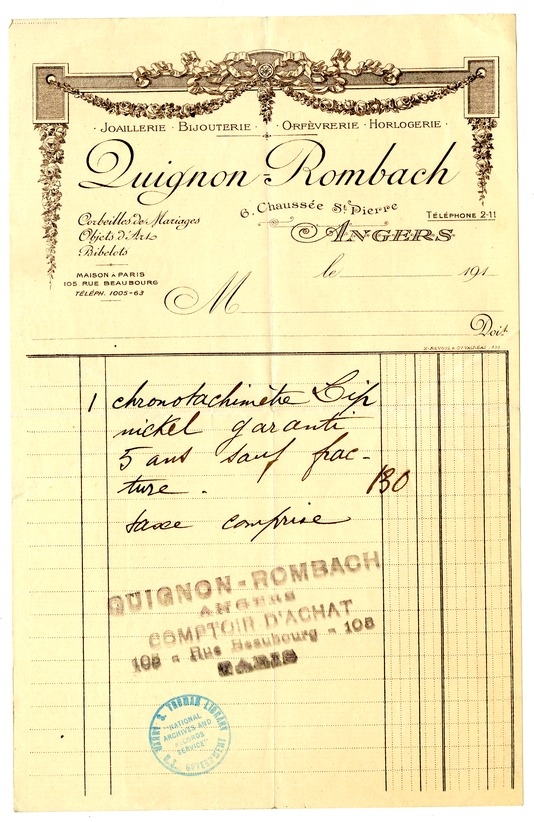 · JOAILLERIE · BIJOUTERIE · ORFÈVRERIE · HORLOGERIE ·
Quignon-Rombach
6. Chaussée St Pierre
TÉLÉPHONE 2-11
ANGERS
Corbeilles de Mariages
Objets d'Art
Bibelots
MAISON À PARIS
105 RUE BEAUBOURG
TÉLÉPH. 1005-63
le 191
M
Doit
1 chronotachimètre Lip
nickel garanti
5 ans sauf frac-
ture . 130
taxe comprise
QUIGNON-ROMBACH
ANGERS
COMPTOIR D'ACHAT
105 - Rue Beaubourg - 105
PARIS
HARRY S. TRUMAN LIBRARY
"NATIONAL
ARCHIVES AND
RECORDS
SERVICE"
U.S. GOVERNMENT